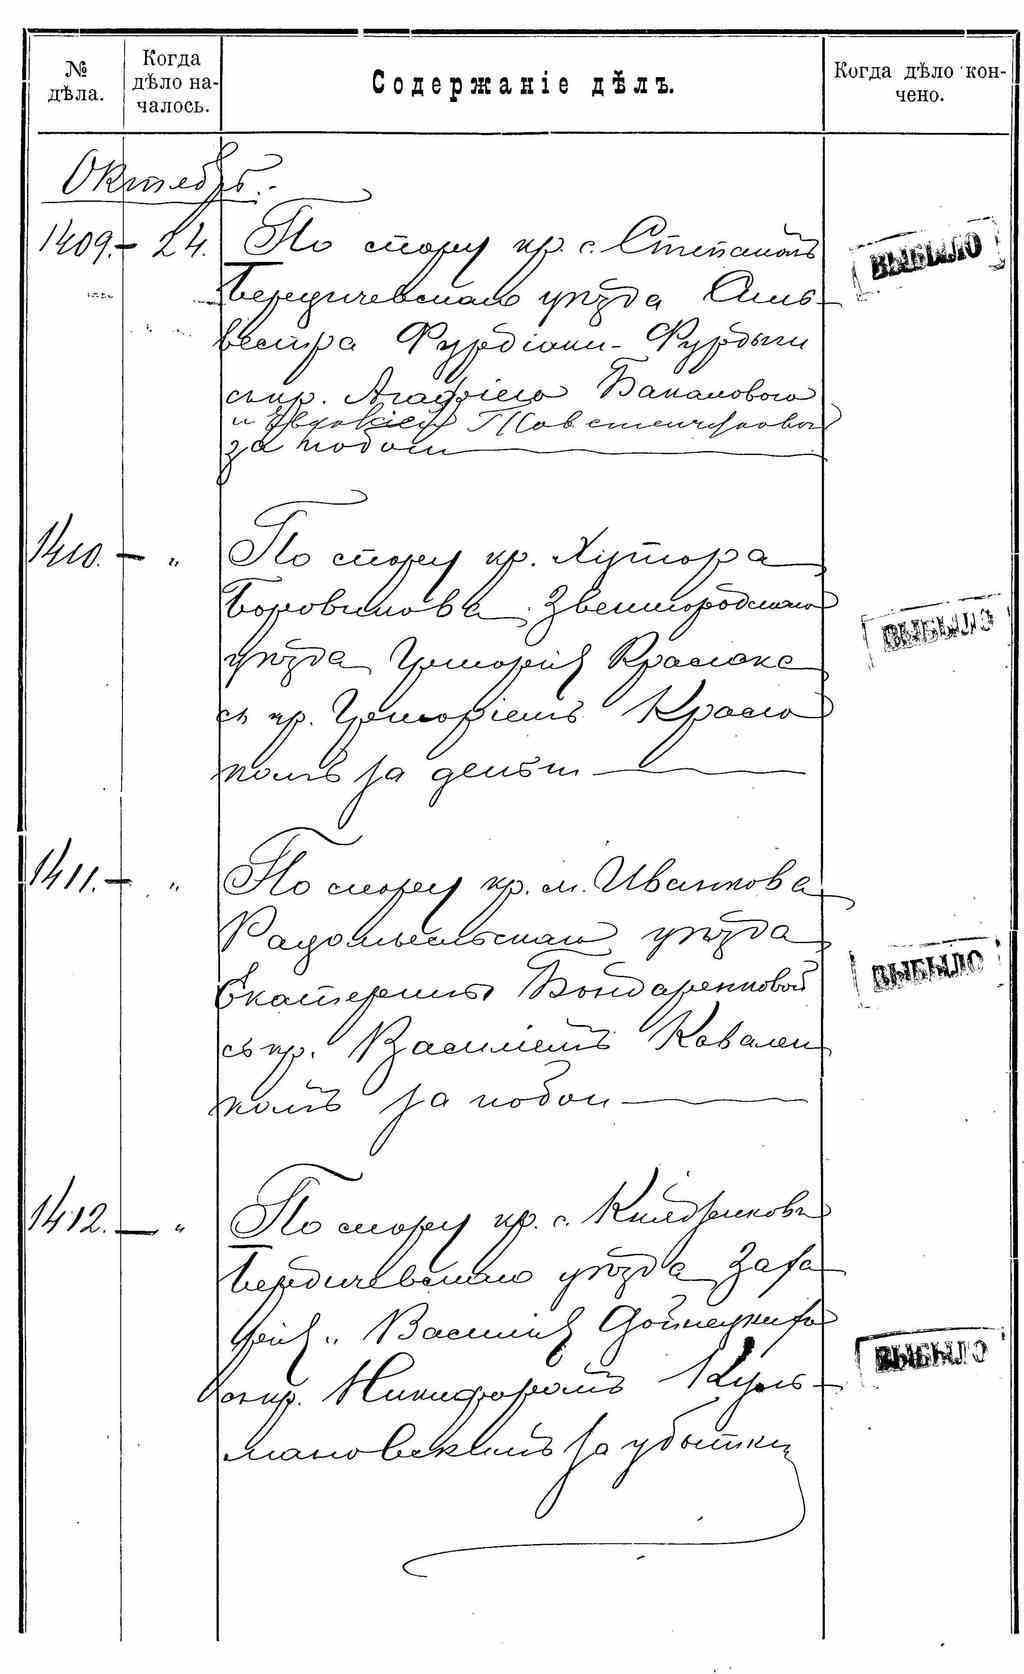 № дѣла.
Когда дѣло на-
чалось.
Содержаніе дѣлъ.
Когда дѣло кон-
чено.
Октябрь.
1409. — 24. По спору кр. с. Степанокъ
Бердичевскаго уѣзда Силь-
вестра Фурдіяки-Фурдыги
съ кр. Агафіею Бакаловою
и Евдокіею
за побои
ВЫБЫЛО
1410. — „ По спору кр. Хутора
Боровикова, Звенигородскаго
уѣзда Григорія Красюка
съ кр. Григоріемъ Красю
комъ за деньги
ВЫБЫЛО
1411. — „ По спору кр. м. Иванкова
Радомысльскаго уѣзда
Екатерины Бондаренковой
съ кр. Василіемъ Ковален
комъ за побои
ВЫБЫЛО
1412. — „ По спору кр. с.
Бердичевскаго уѣзда Заха
рія и Василія
съ кр. Никифоромъ Куль-
мановскимъ за убытки
ВЫБЫЛО